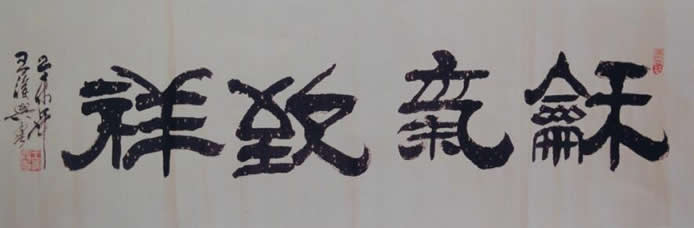 龢氣致祥